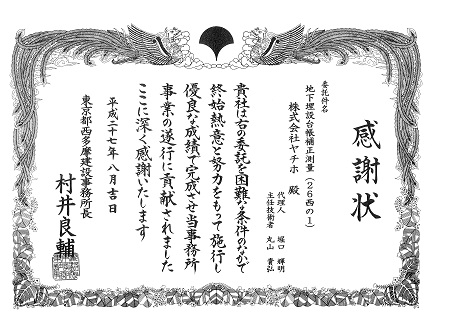 感謝状
委託件名
地下埋設台帳補正測量（26西の1）
株式会社ヤチホ 殿
代理人 堀口輝明
主任技術者 丸山貴弘
貴社は右の委託を困難な条件のなかで
終始熱意と努力をもって施行し
優良な成績で完成させ当事務所
事業の遂行に貢献されました
ここに深く感謝いたします
平成二十七年八月吉日
東京都西多摩建設事務所長
村井良輔